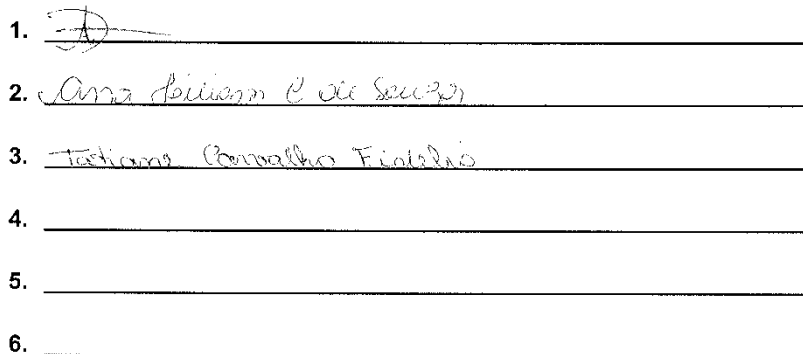 1.
2. Ana Liliam C de Souza
3. Tatiane Carvalho Fidelio
4.
5.
6.